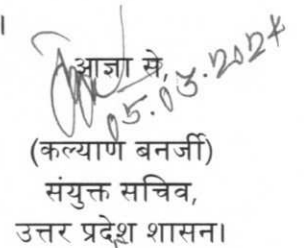 ।
आज्ञा से,
05.03.2024
(कल्याण बनर्जी)
संयुक्त सचिव,
उत्तर प्रदेश शासन।